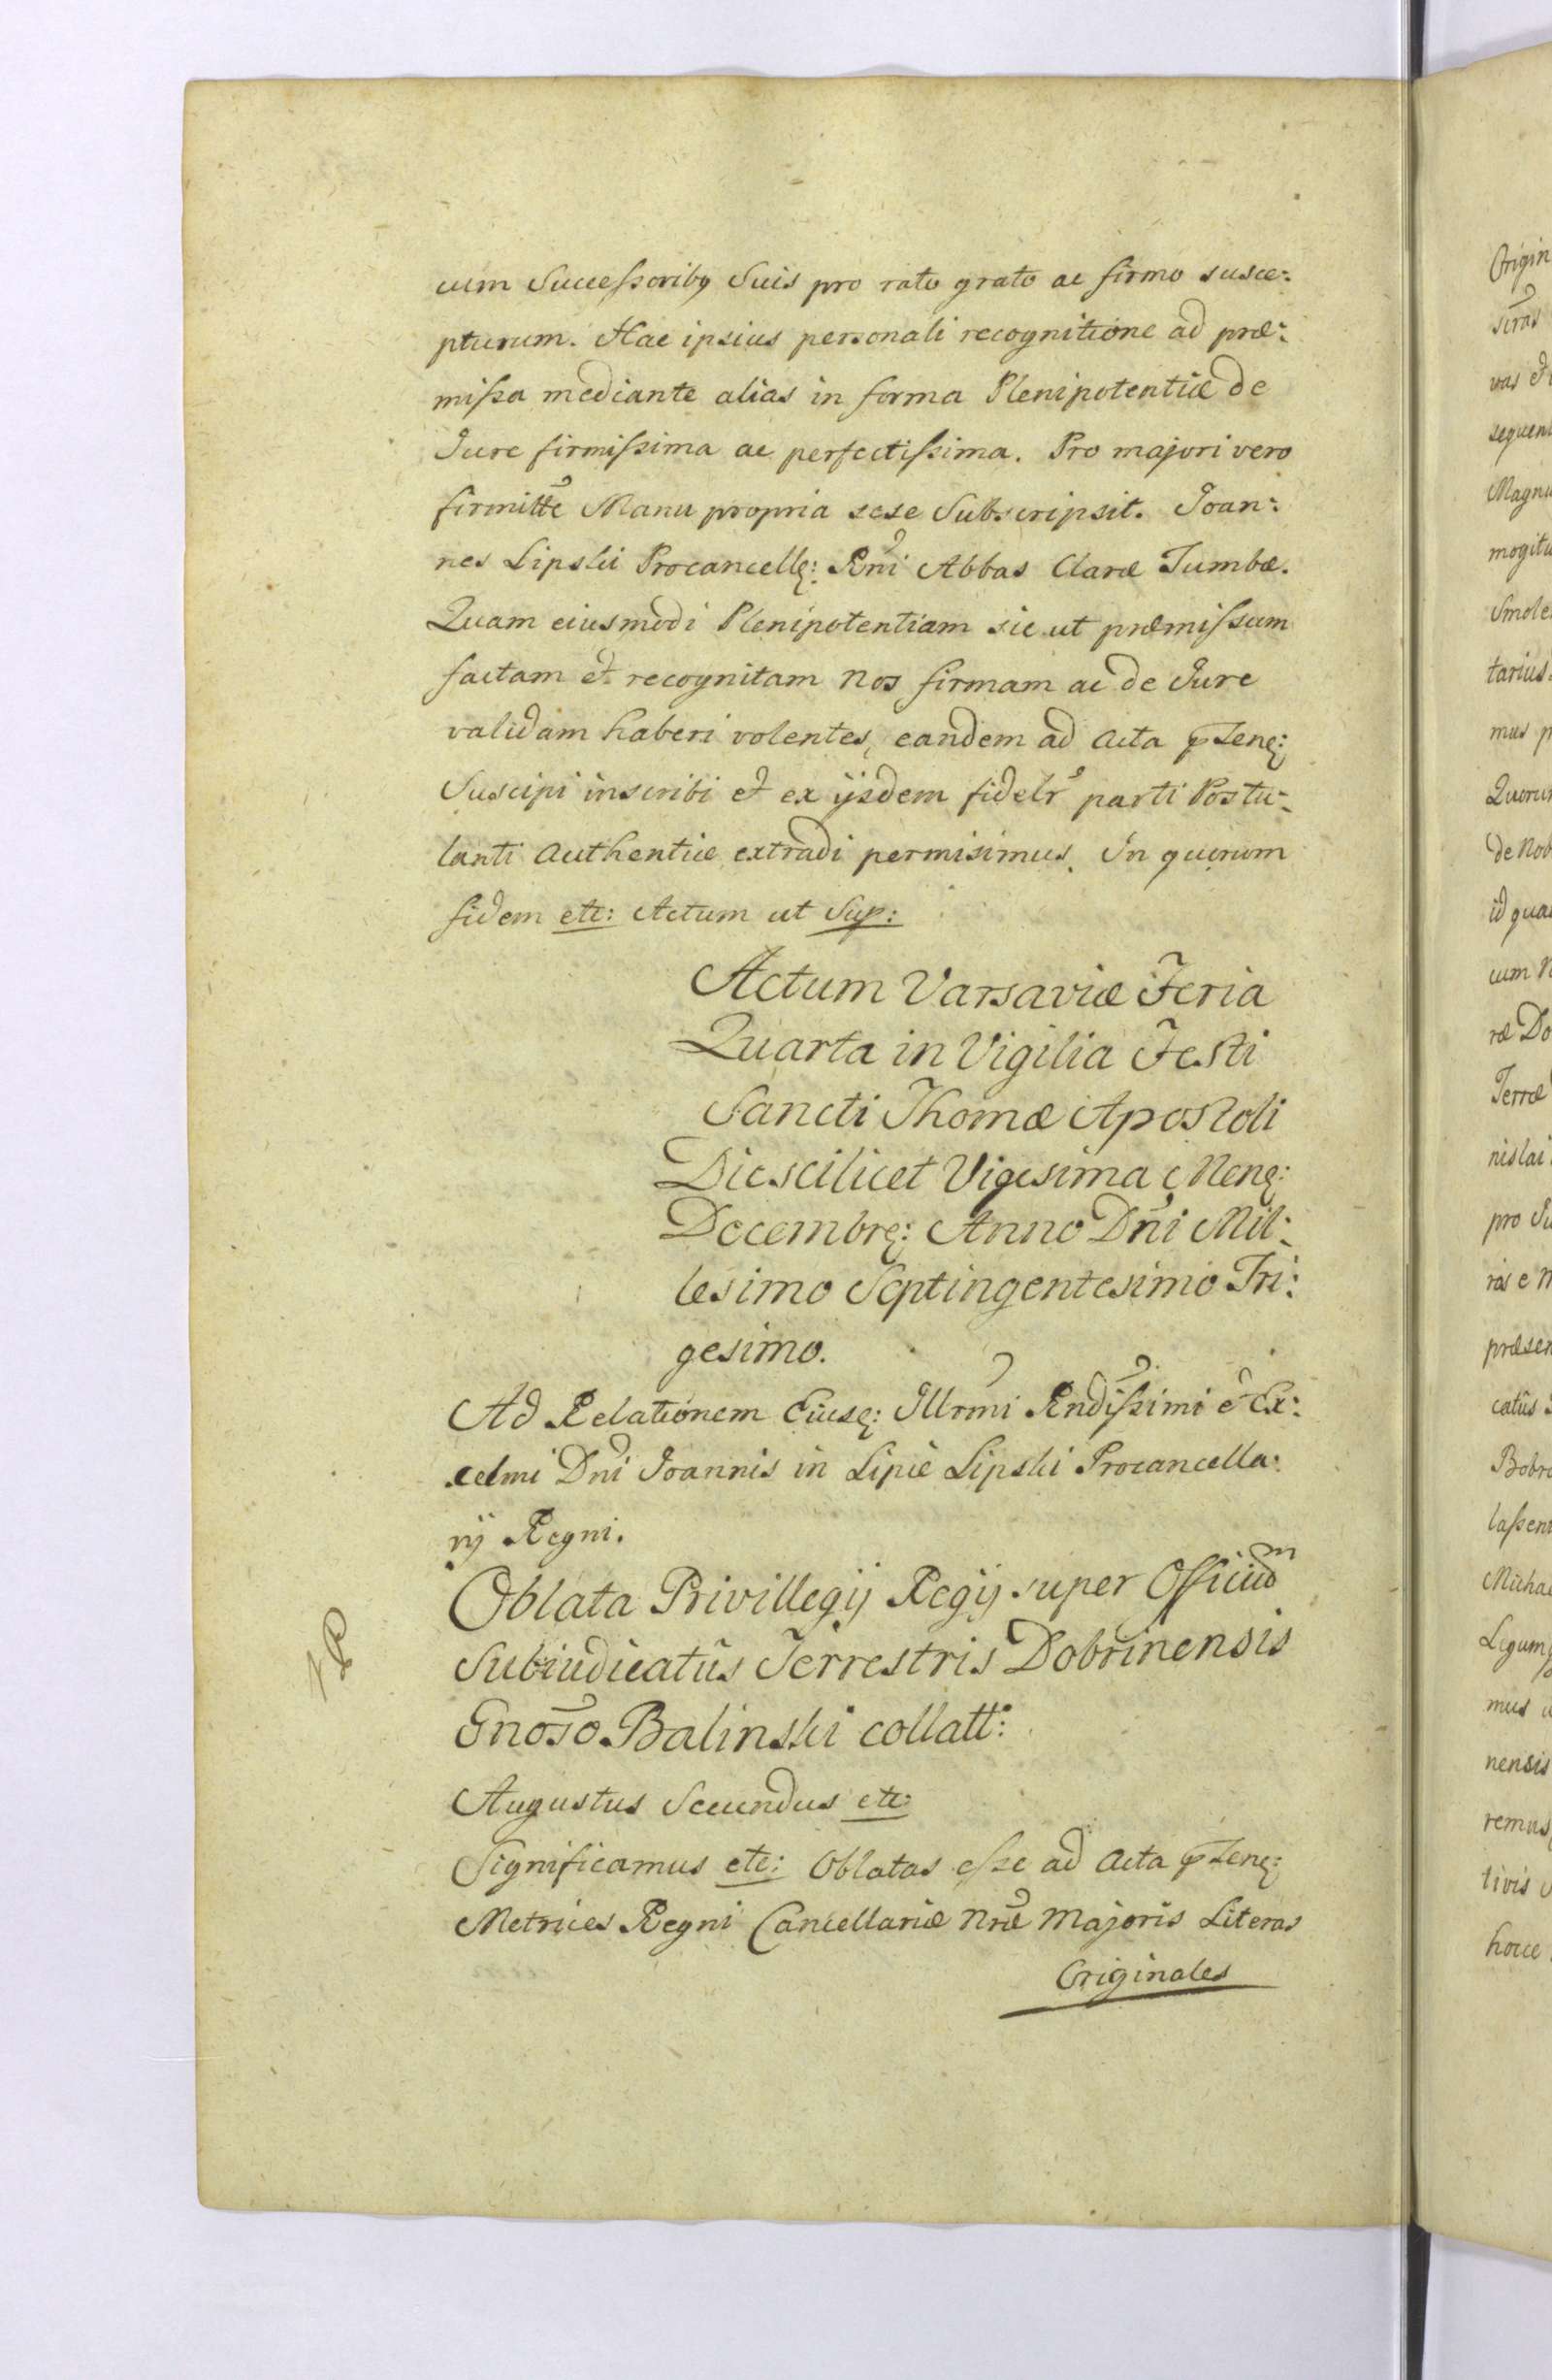 cum Successoribꝰ Suis pro rato grato ac firmo susce:
pturum. Hac ipsius personali recognitione ad præ:
missa mediante alias in forma Plenipotentiæ de
Jure firmissima ac perfectissima. Pro majori vero
firmitte Manu propria sese Subscripsit. Joan:
nes Lipski Procancellę: Rni Abbas Claræ Tumbæ.
Quam eiusmodi Plenipotentiam sic ut præmissum
factam et recognitam Nos firmam ac de Jure
validam haberi volentes, eandem ad Acta pntenę:
Suscipi inscribi et ex ijsdem fidelr parti Postu:
lanti Authentice extradi permisimus. In quorum
fidem etc: Actum ut Sup:
Actum Varsaviæ Feria
Quarta in Vigilia Festi
Sancti Thomæ Apostoli
Die scilicet Vigesima Menę:
Decembrę: Anno Dni Mil:
lesimo Septingentesimo Tri:
gesimo.
Ad Relationem Eiusę: Illrmi Rndissimi et Ex:
celmi Dni Joannis in Lipie Lipski Procancella:
rij Regni.
Oblata Privillegij Regij super Officium
Subiudicatûs Terrestris Dobrinensis
Gnoso Balinski collatt:
Augustus Secundus etc:
Significamus etc: Oblatas esse ad Acta pntenę:
Metrices Regni Cancellariæ Nræ Majoris Literas
Originales